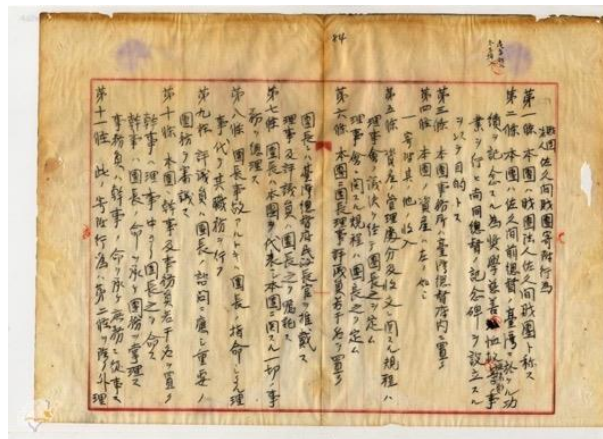 84
財団法人佐久間財團寄附行為
第一條 本團ハ財團法人佐久間財團ト称ス
第二條 本團ハ佐久間前總督ノ臺灣ニ於ケル功
績ヲ記念スル為奬學慈善
業ヲ行ヒ尚同總督ノ記念碑ヲ設立スル
ヲ以テ目的トス
第三條 本團事務所ハ臺灣總督府内ニ置ク
第四條 本團ノ資産ハ左ノ如シ
一 寄附其ノ他ノ收入
第五條 資産ノ管理處分及收支ニ関スル規程ハ
理事會ノ議決ヲ経テ團長之ヲ定ム
理事會ニ関スル規程ハ團長之ヲ定ム
第六條 本團ニ團長理事評議員若干名ヲ置ク
團長ハ臺灣總督府民政長官ヲ推戴ス
理事及評議員ハ團長之ヲ囑托ス
第七條 團長ハ本團ヲ代表シ本團ニ関スル一切ノ事
務ヲ總理ス
第八條 團長事故アルトキハ團長ノ指命シタル理
事代リ其職務ヲ行フ
第九條 評議員ハ團長ノ諮問ニ應シ重要ノ
團務ヲ審議ス
第十條 本團ニ幹事及事務員若干名ヲ置ク
幹事ハ理事中ヨリ團長之ヲ命ス
幹事ハ團長ノ命ヲ承ケ團務ヲ掌理ス
事務員ハ幹事ノ命ヲ承ケ庶務ニ従事ス
第十一條 此ノ寄附行為ハ第二條ヲ除ク外理